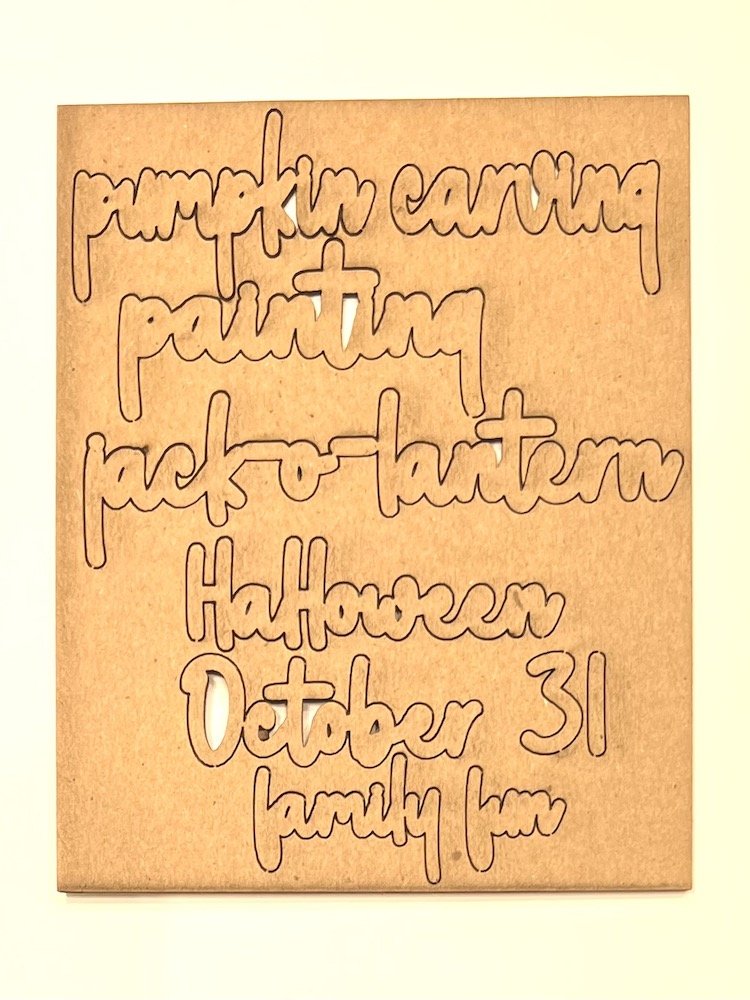 pumpkin carving
painting
jack-o-lantern
Halloween
October 31
family fun